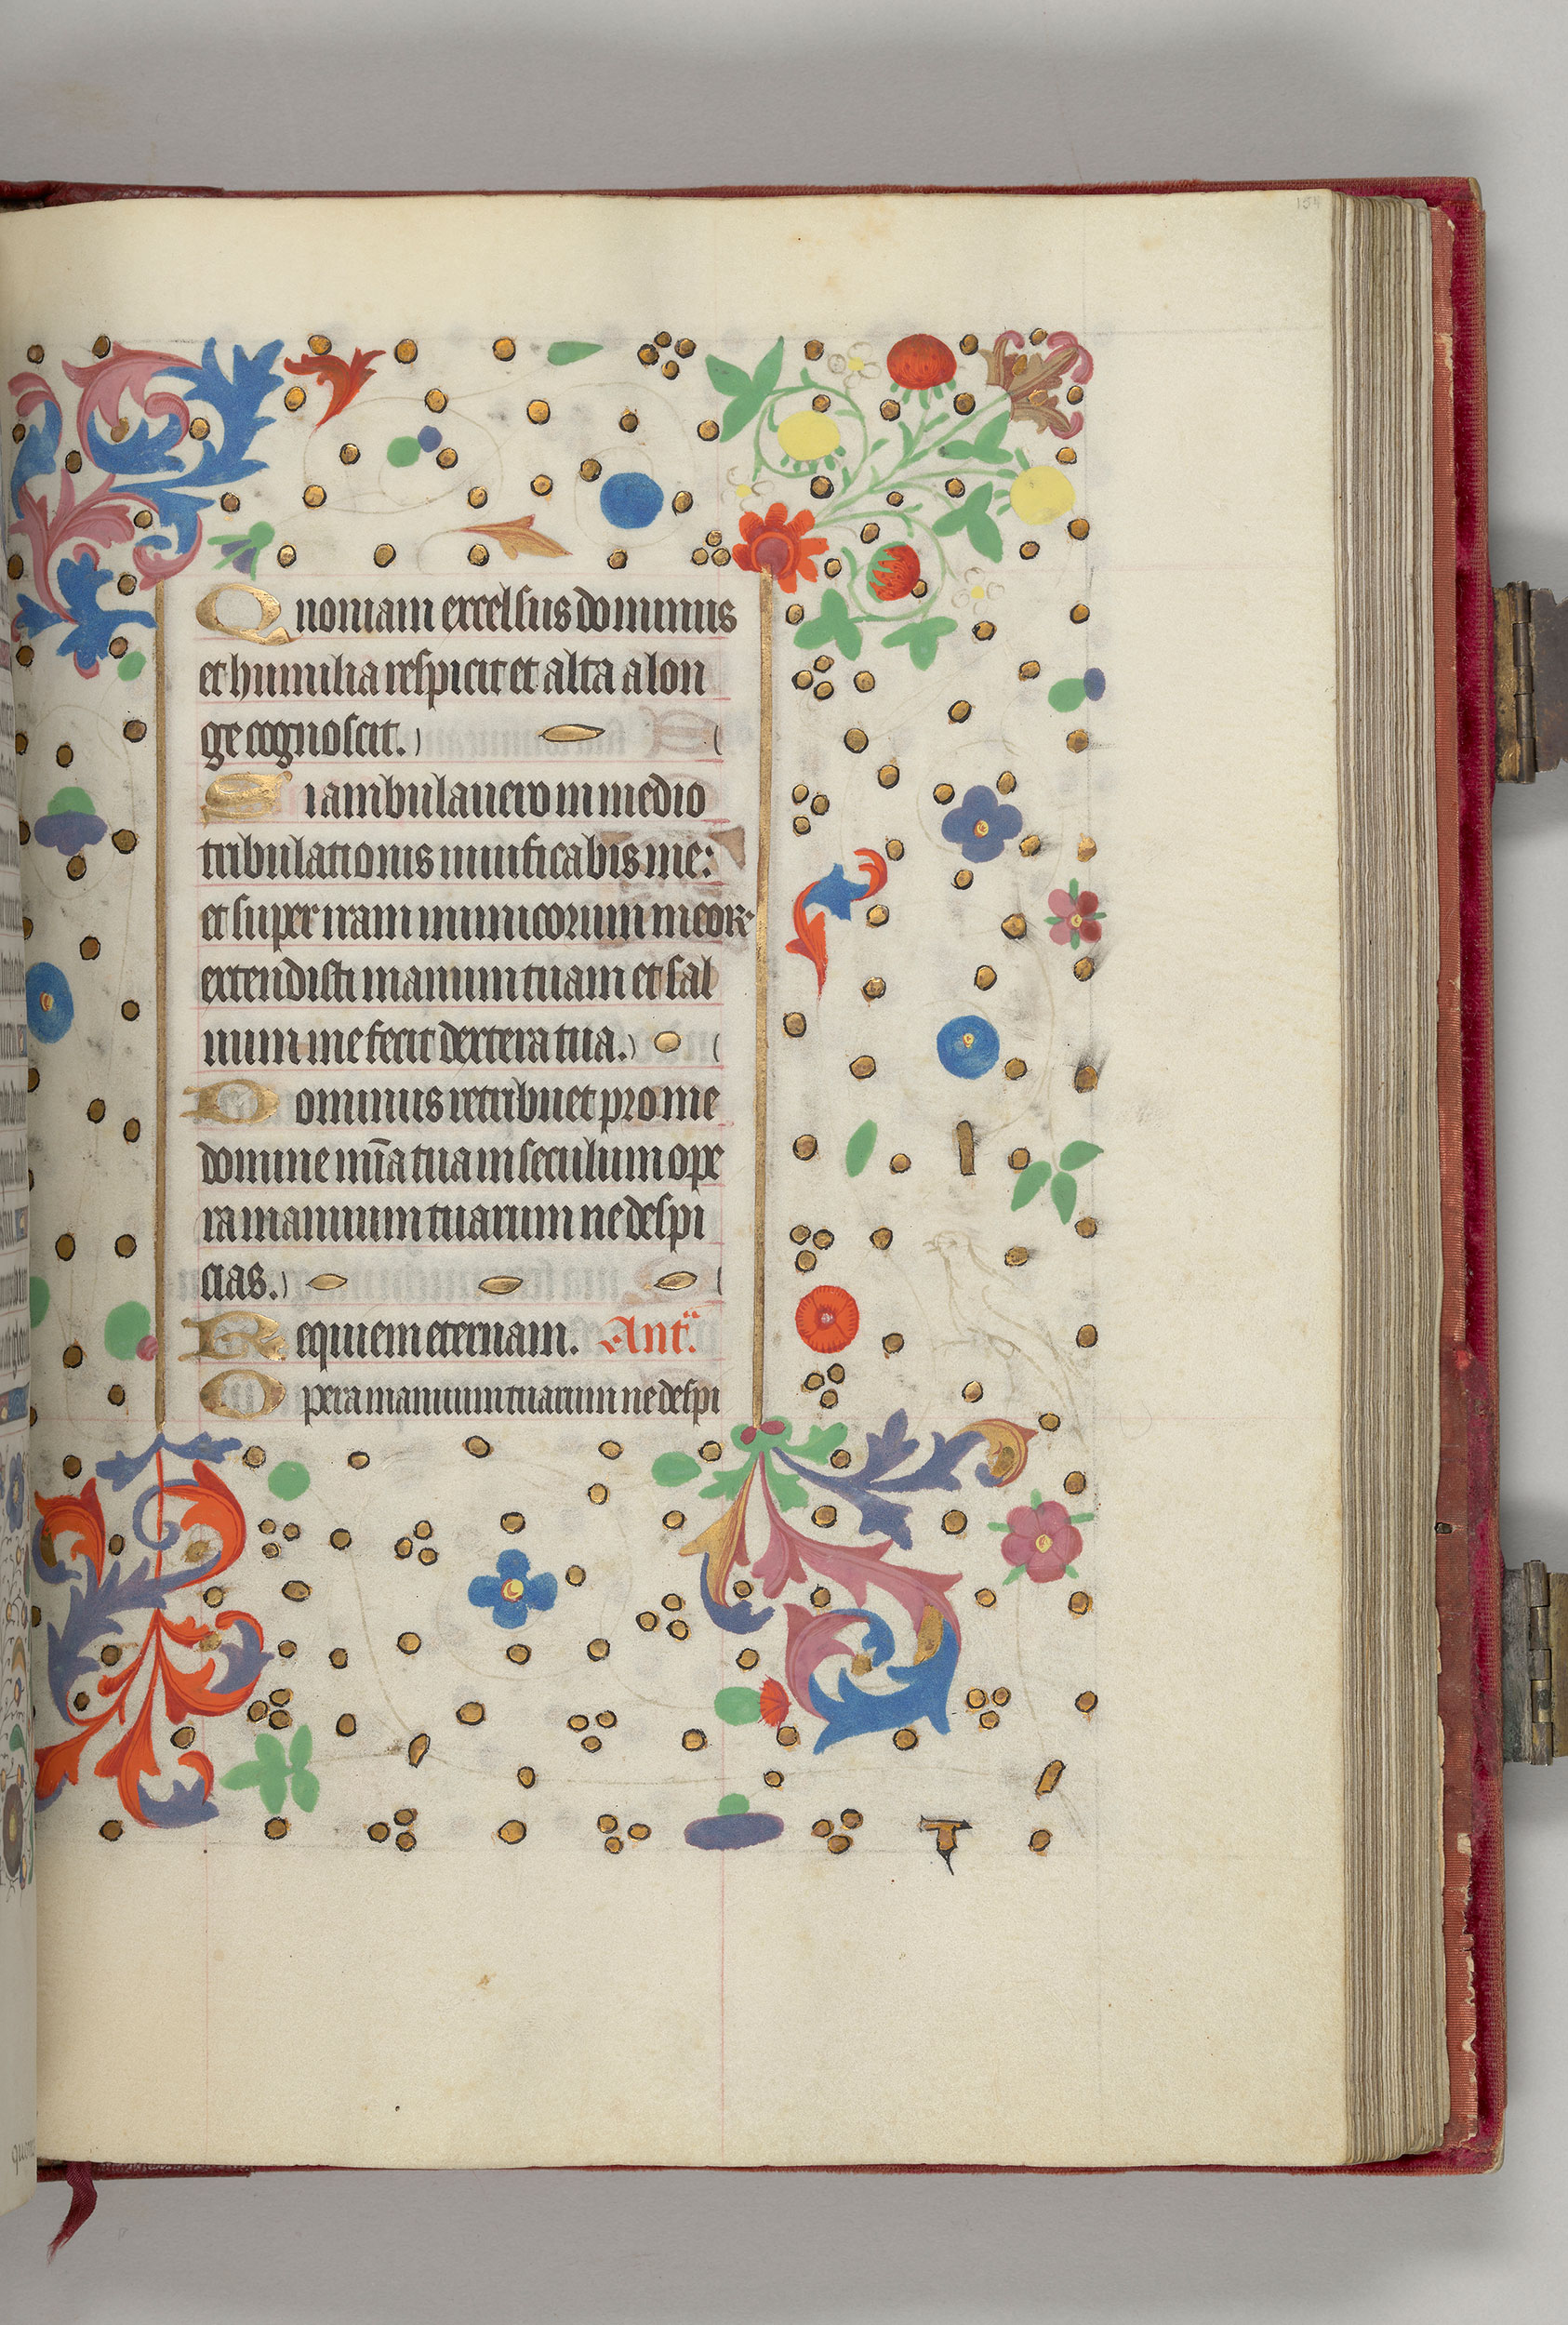 Quoniam excelsus dominus
et humilia respicit et alta a lon
ge cognoscit.
Si ambulauero in medio
tribulationis uiuificabis me:
et super iram inimicorum meoꝝ
extendisti manum tuam et sal
uum me fecit dextera tua.
Dominus retribuet pro me
domine mīa tuam seculum ope
ra manuum tuarum ne despi
cias.
Requiem eternam. Ant.
Opera manuum tuarum ne despi